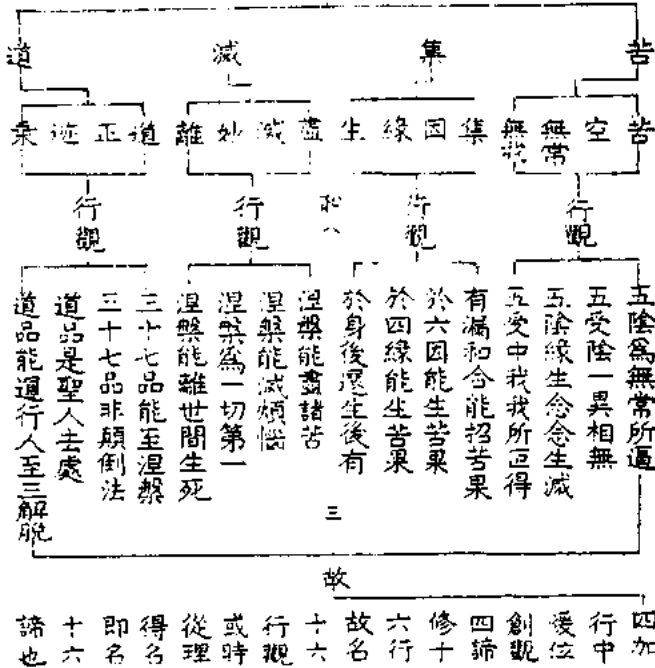 苦
集
滅
道
苦
空
無常
無我
集
因
緣
生
盡
滅
妙
離
道
正
迹
乘
行觀
行觀
行觀
行觀
五陰為無常所逼
五受陰一異相無
五陰緣生念念生滅
五受中我我所叵得
有漏和合能招苦果
於六因能生苦果
於四緣能生苦果
於身後還生後有
涅槃能盡諸苦
涅槃能滅煩惱
涅槃為一切第一
涅槃能離世間生死
三十七品能至涅槃
三十七品非顛倒法
道品是聖人去處
道品能運行人至三解脫
三
故
四加
行中
煖位
創觀
四諦
修十
六行
故名
十六
行觀
或時
從理
得名
即名
十六
諦也